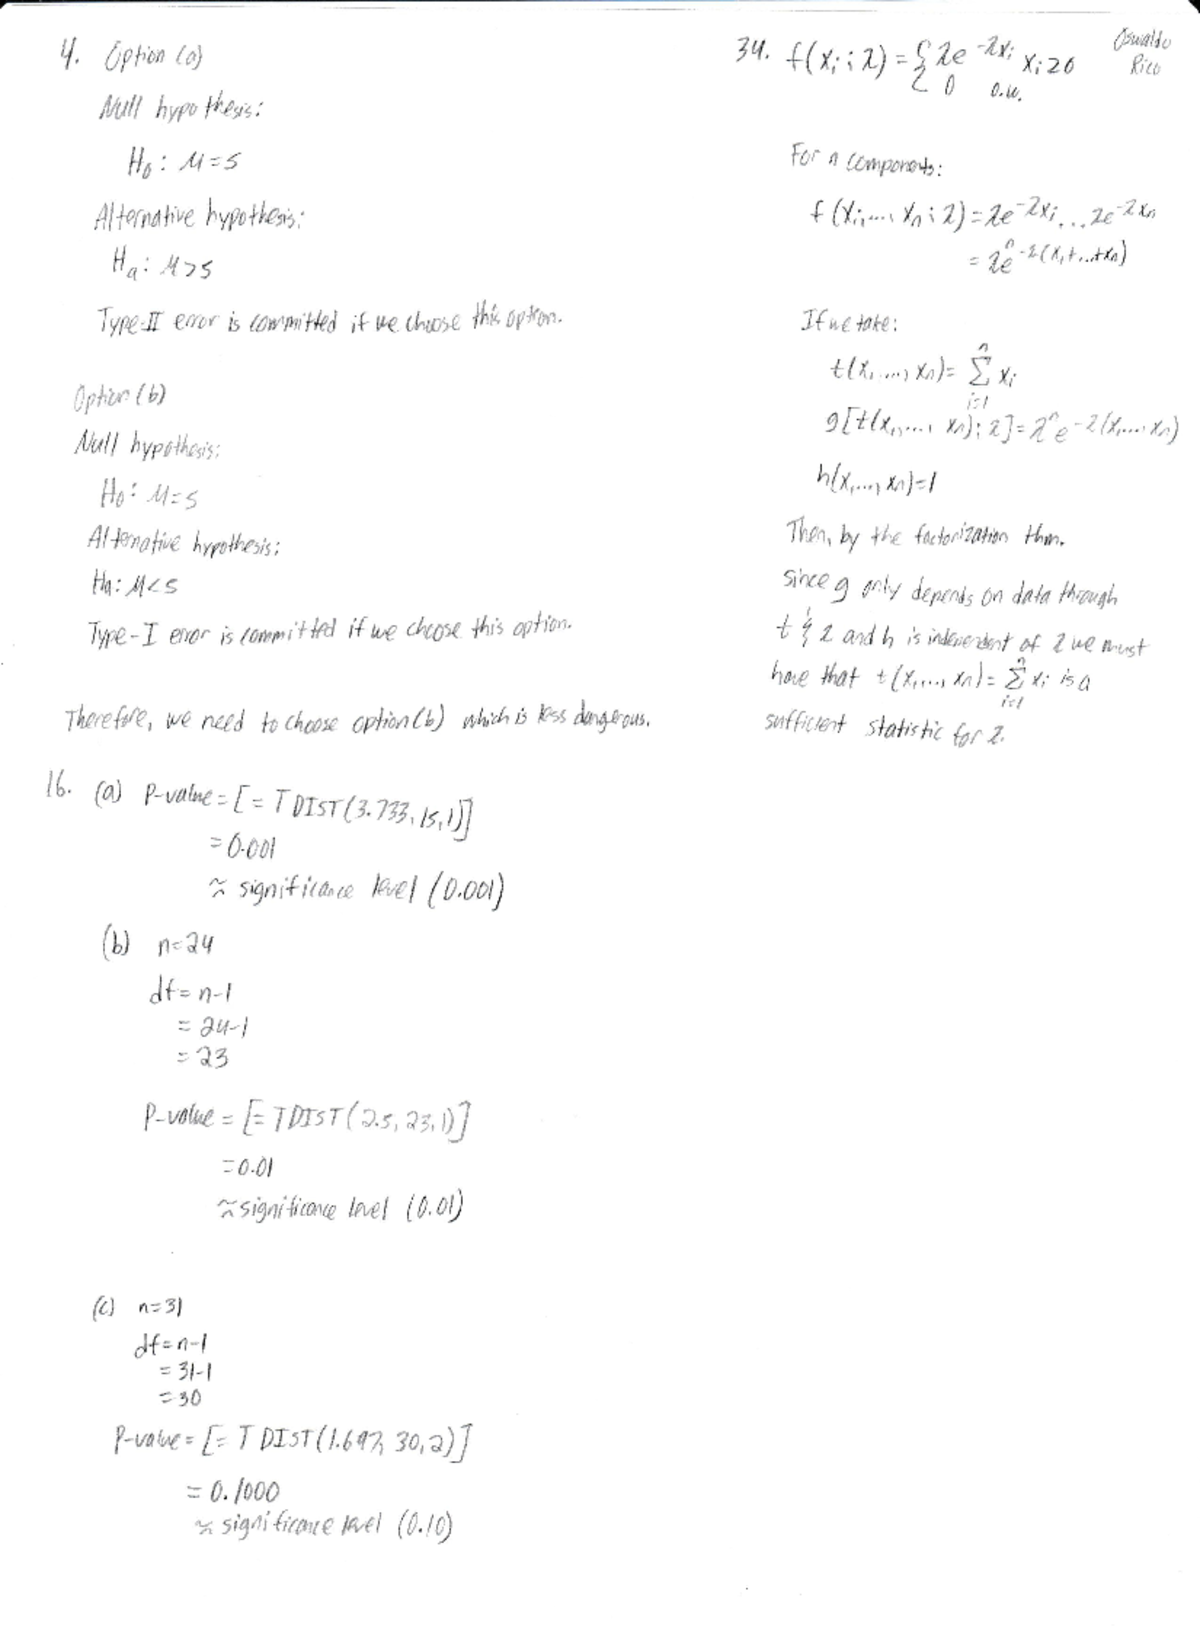 4. Option (a)
Null hypothesis:
H₀: μ=5
Alternative hypothesis:
Hₐ: μ>5
Type-II error is committed if we choose this option.
Option (b)
Null hypothesis:
H₀: μ=5
Alternative hypothesis:
Hₐ: μ<5
Type-I error is committed if we choose this option.
Therefore, we need to choose option (b) which is less dangerous.
16. (a) P-value = [= TDIST(3.733, 15, 1)]
= 0.001
≈ significance level (0.001)
(b) n=24
df = n-1
= 24-1
= 23
P-value = [= TDIST(2.5, 23, 1)]
= 0.01
≈ significance level (0.01)
(c) n=31
df = n-1
= 31-1
= 30
P-value = [= TDIST(1.697, 30, 2)]
= 0.1000
≈ significance level (0.10)
Oswaldo
Rico
34. f(xᵢ; λ) = { λe^-λxᵢ xᵢ≥0
0 o.w.
For n components:
f(xᵢ,..., xₙ; λ) = λe^-λxᵢ ... λe^-λxₙ
= λⁿe^-λ(x₁+...+xₙ)
If we take:
t(x₁,..., xₙ) = Σⁿᵢ₌₁ xᵢ
g[t(x₁,..., xₙ); λ] = λⁿe^-λ(x₁,...,xₙ)
h(x₁,..., xₙ) = 1
Then, by the factorization thm.
since g only depends on data through
t & λ and h is independent of λ we must
have that t(x₁,..., xₙ) = Σⁿᵢ₌₁ xᵢ is a
sufficient statistic for λ.